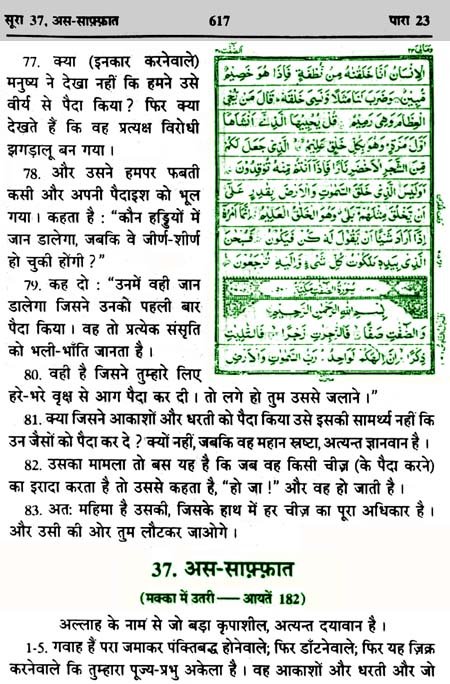 सूरा 37, अस-साफ़्फ़ात 617 पारा 23
77. क्या (इनकार करनेवाले)
मनुष्य ने देखा नहीं कि हमने उसे
वीर्य से पैदा किया? फिर क्या
देखते हैं कि वह प्रत्यक्ष विरोधी
झगड़ालू बन गया।
78. और उसने हमपर फबती
कसी और अपनी पैदाइश को भूल
गया। कहता है : “कौन हड्डियों में
जान डालेगा, जबकि वे जीर्ण-शीर्ण
हो चुकी होंगी?”
79. कह दो : “उनमें वही जान
डालेगा जिसने उनको पहली बार
पैदा किया। वह तो प्रत्येक संसृति
को भली-भाँति जानता है।
80. वही है जिसने तुम्हारे लिए
हरे-भरे वृक्ष से आग पैदा कर दी। तो लगे हो तुम उससे जलाने।”
81. क्या जिसने आकाशों और धरती को पैदा किया उसे इसकी सामर्थ्य नहीं कि
उन जैसों को पैदा कर दे? क्यों नहीं, जबकि वह महान स्रष्टा, अत्यन्त ज्ञानवान है।
82. उसका मामला तो बस यह है कि जब वह किसी चीज़ (के पैदा करने)
का इरादा करता है तो उससे कहता है, “हो जा!” और वह हो जाती है।
83. अतः महिमा है उसकी, जिसके हाथ में हर चीज़ का पूरा अधिकार है।
और उसी की ओर तुम लौटकर जाओगे।
الإنسان أنا خلقناه من نطفة فإذا هو خصيم
مبين وضرب لنا مثلا ونسي خلقه قال من يحي
العظام وهي رميم قل يحييها الذي أنشأها
أول مرة وهو بكل خلق عليم الذي جعل لكم
من الشجر الأخضر نارا فإذا أنتم منه توقدون
أوليس الذي خلق السموت والأرض بقدر على
أن يخلق مثلهم بلى وهو الخلق العليم إنما أمره
إذا أراد شيئا أن يقول له كن فيكون فسبحن
الذي بيده ملكوت كل شيء وإليه ترجعون
بسم الله الرحمن الرحيم
والصفت صفا فالزجرت زجرا فالتليت
ذكرا إن إلهكم لواحد رب السموت والأرض
37. अस-साफ़्फ़ात
(मक्का में उतरी — आयतें 182)
अल्लाह के नाम से जो बड़ा कृपाशील, अत्यन्त दयावान है।
1-5. गवाह हैं परा जमाकर पंक्तिबद्ध होनेवाले; फिर डाँटनेवाले; फिर यह ज़िक्र
करनेवाले कि तुम्हारा पूज्य-प्रभु अकेला है। वह आकाशों और धरती और जो